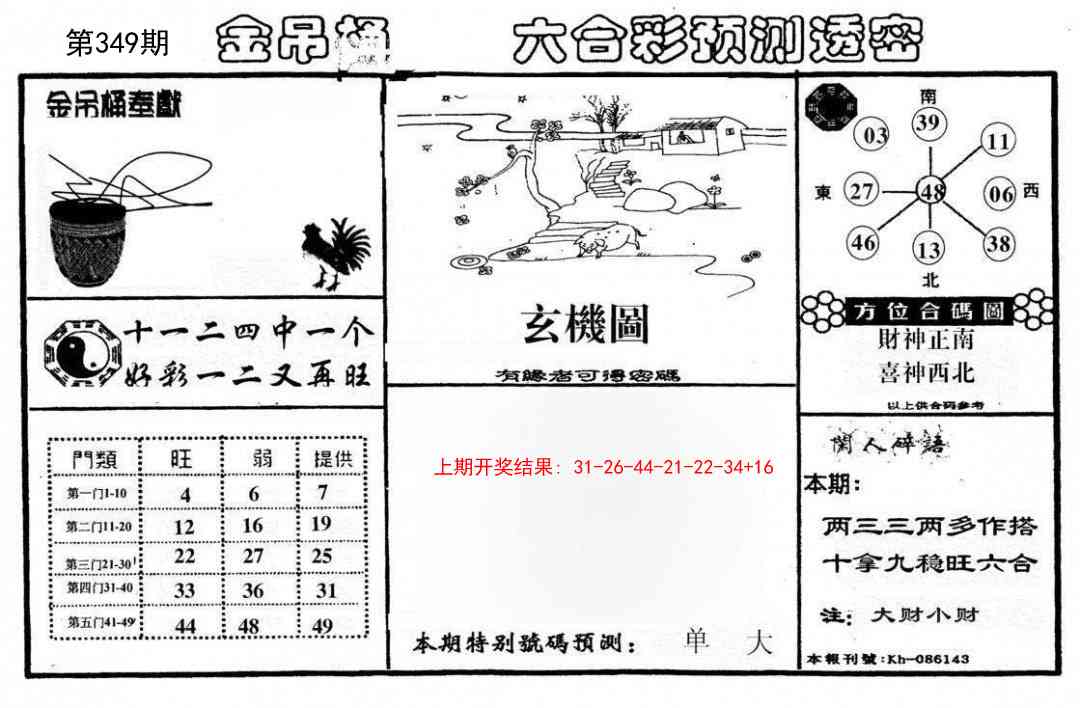 第349期 金吊桶 六合彩预测透密
金吊桶奉獻
十一二四中一个
好彩一二又再旺
門類 旺 弱 提供
第一门1-10 4 6 7
第二门11-20 12 16 19
第三门21-30 22 27 25
第四门31-40 33 36 31
第五门41-49 44 48 49
玄機圖
有緣者可得密碼
上期开奖结果: 31-26-44-21-22-34+16
本期特别號碼预测: 单 大
南
39
03
11
東 27 48 06 西
46 13 38
北
方位合碼圖
財神正南
喜神西北
以上供合码参考
閑人碎語
本期:
两三三两多作搭
十拿九稳旺六合
注: 大财小财
本報刊號:Kh-086143